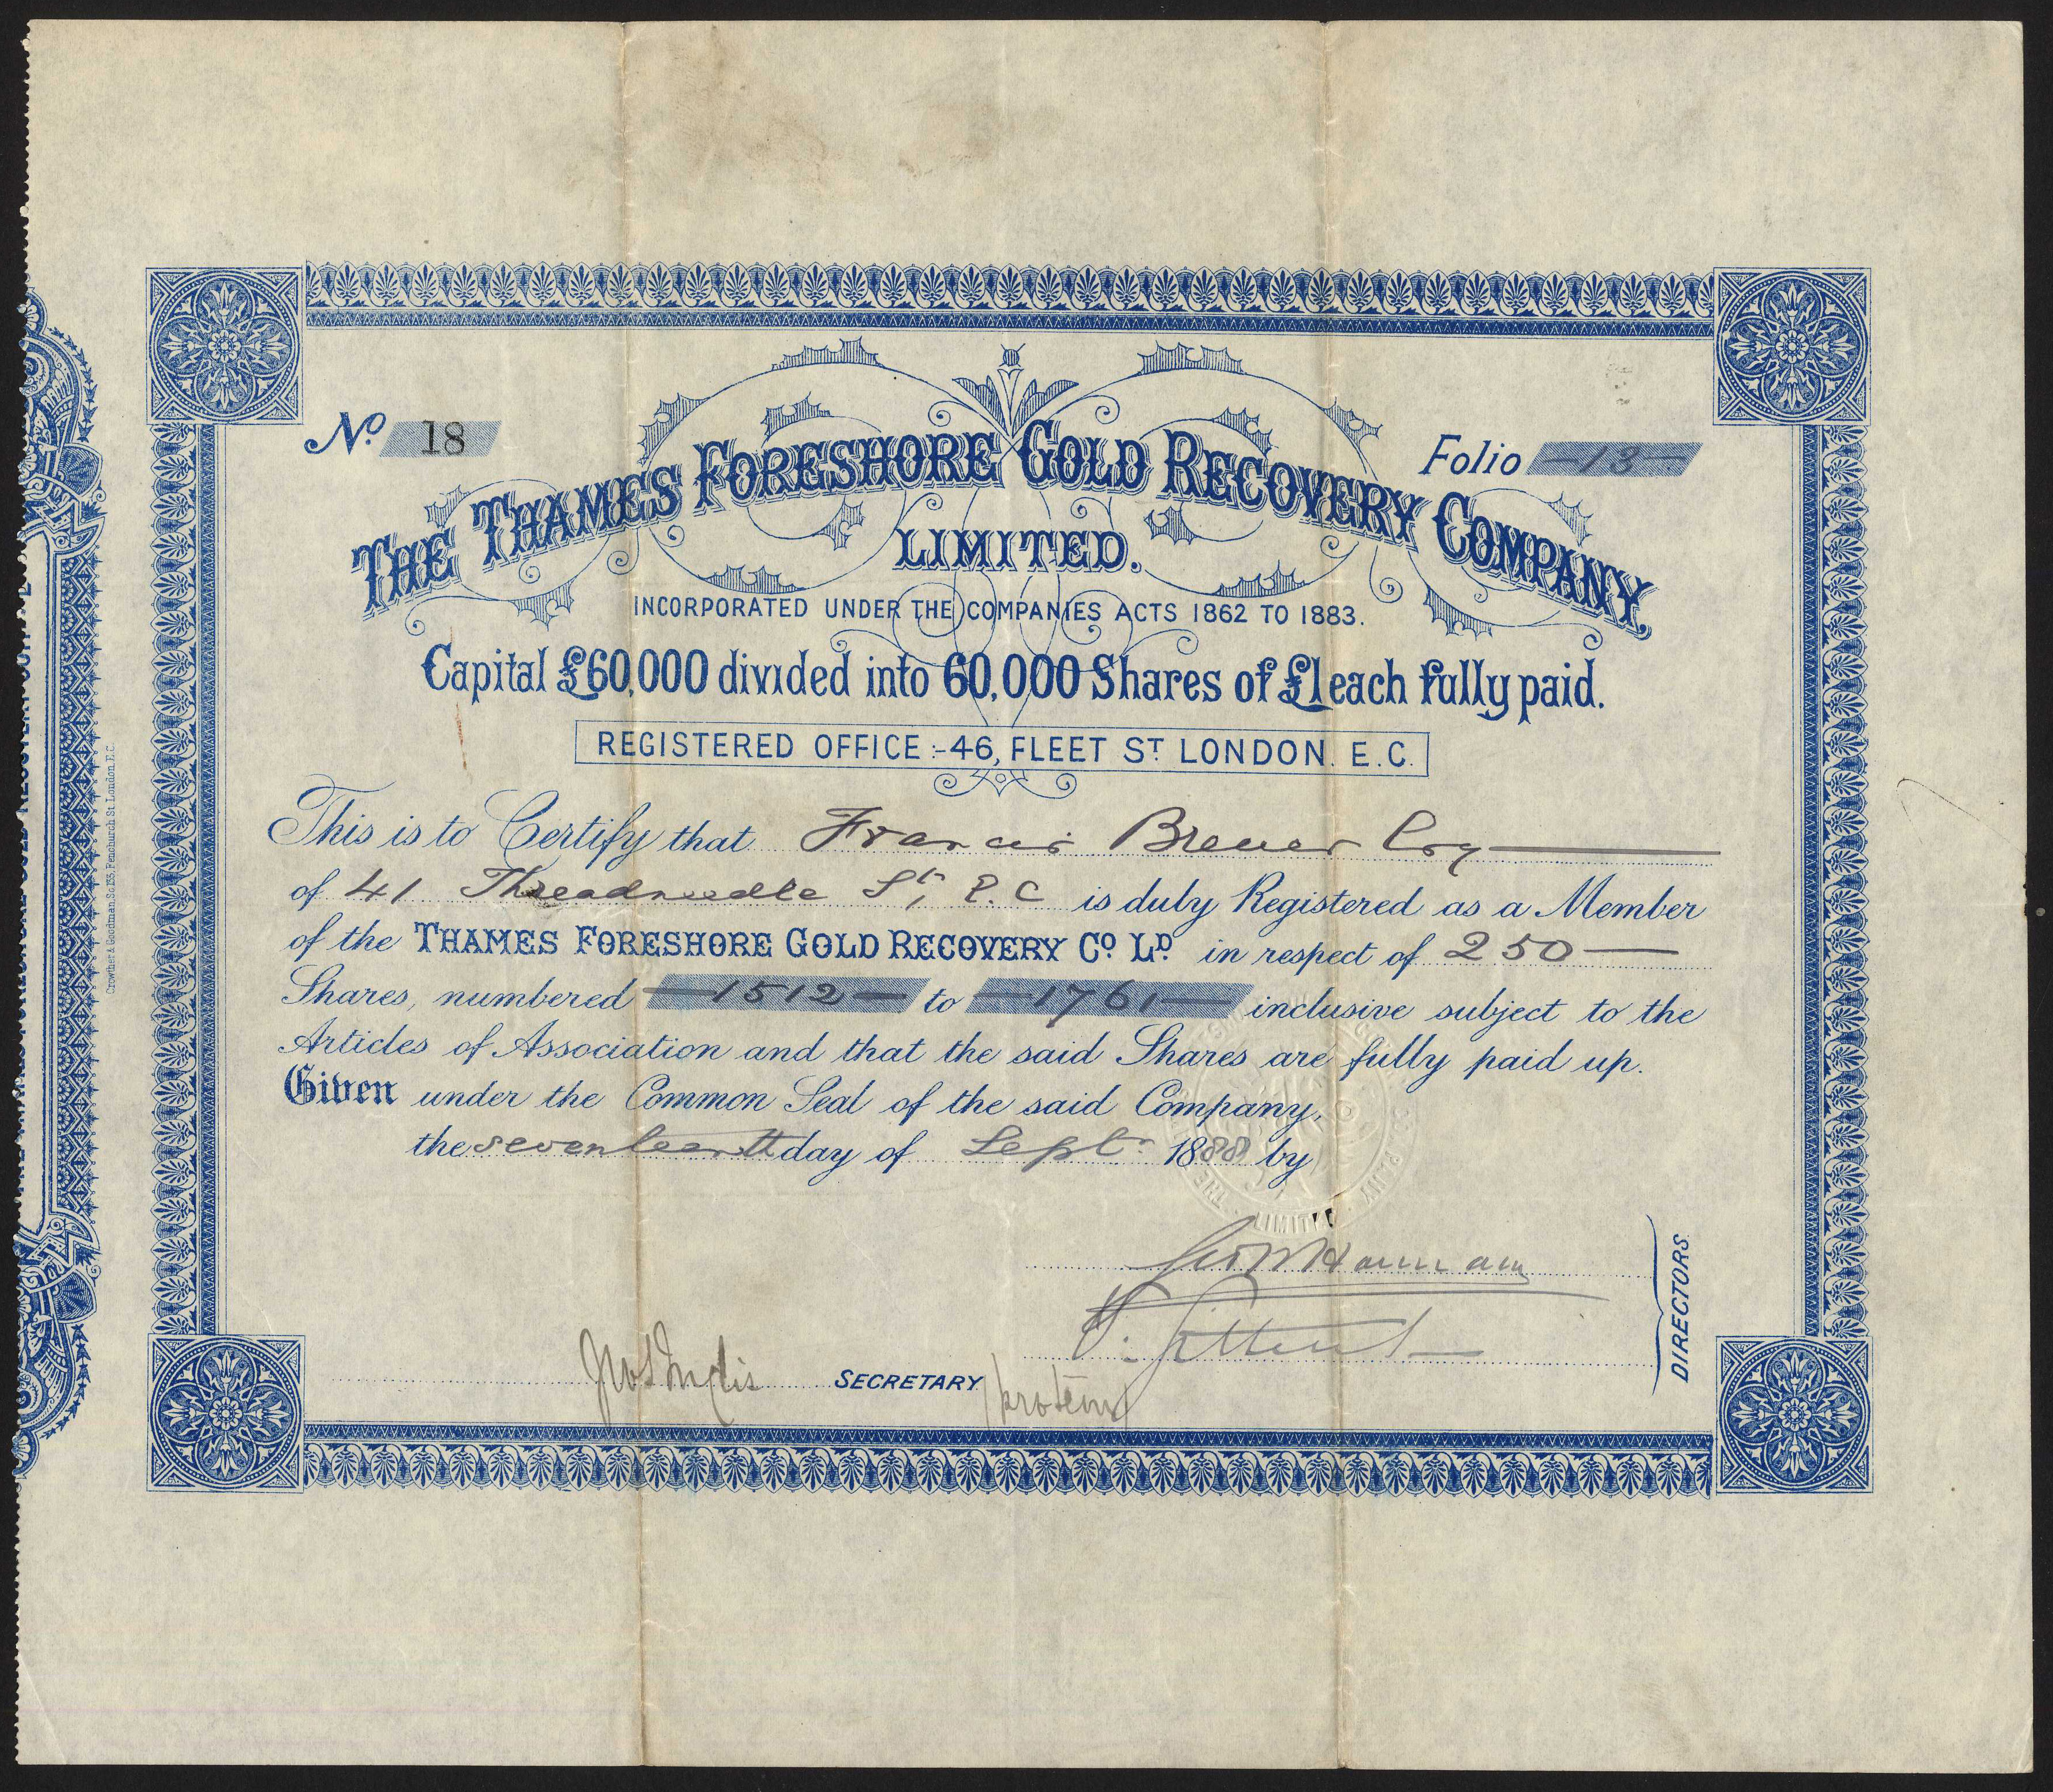 No. 18
Folio -13-
THE THAMES FORESHORE GOLD RECOVERY COMPANY,
LIMITED.
INCORPORATED UNDER THE COMPANIES ACTS 1862 TO 1883.
Capital £60,000 divided into 60,000 Shares of £1 each fully paid.
REGISTERED OFFICE:-46, FLEET ST LONDON. E.C.
This is to Certify that Francis Brewer Esq
of 41 Threadneedle St, E.C is duly Registered as a Member
of the THAMES FORESHORE GOLD RECOVERY CO. LD. in respect of 250 —
Shares, numbered —1512— to —1761— inclusive subject to the
Articles of Association and that the said Shares are fully paid up.
Given under the Common Seal of the said Company,
the seventeenth day of Sept. 1888 by
DIRECTORS.
SECRETARY
pro tem
Crowther & Goodman, Sc. 135, Fenchurch St. London. E.C.